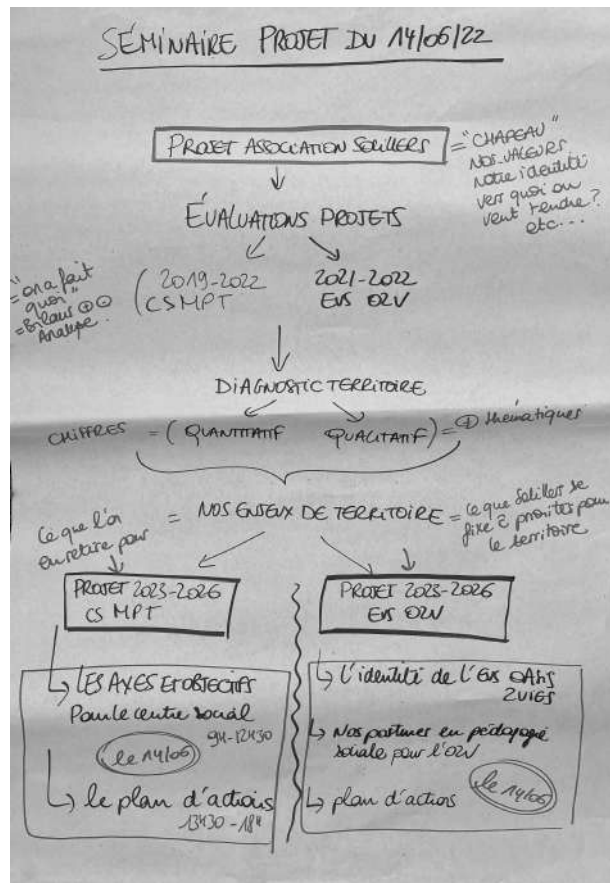 SÉMINAIRE PROJET DU 14/06/22
PROJET ASSOCIATION SOLILLERS
= "CHAPEAU"
NOS VALEURS
Notre identité
vers quoi on
veut tendre ?
etc...
ÉVALUATIONS PROJETS
2019-2022
CSMPT
2021-2022
EVS O2V
"on a fait
quoi"
= Bilans + -
Analyse.
DIAGNOSTIC TERRITOIRE
CHIFFRES = ( QUANTITATIF QUALITATIF ) = + thématiques
Ce que l'on
en retire pour
= NOS ENJEUX DE TERRITOIRE
= ce que Soliller se
fixe 2 priorités pour
le territoire
PROJET 2023-2026
CS MPT
PROJET 2023-2026
EVS O2V
↳ LES AXES ET OBJECTIFS
Pour le centre social
9H-12H30
le 14/06
↳ le plan d'actions
13H30-18H
↳ L'identité de l'EVS
2VIES
↳ Nos postures en pédagogie
sociale pour l'O2V
↳ plan d'actions
le 14/06